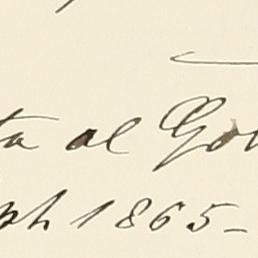 ta al Go
ph 1865-